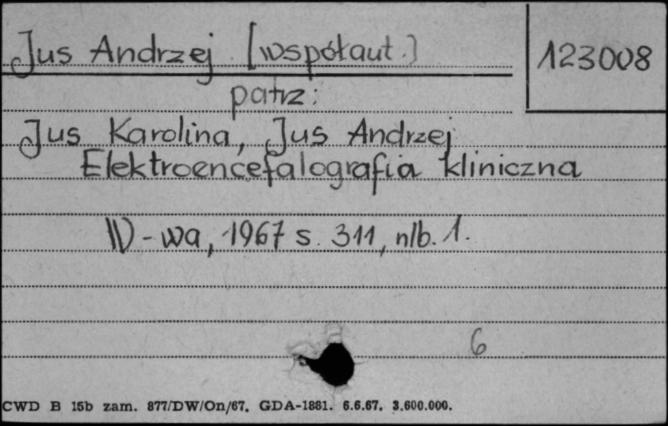 Jus Andrzej [współaut.]
123008
patrz:
Jus Karolina, Jus Andrzej
Elektroencefalografia kliniczna
W-wa, 1967 s. 311, nlb. 1.
6
CWD B 15b zam. 877/DW/On/67. GDA-1881. 6.6.67. 3.600.000.